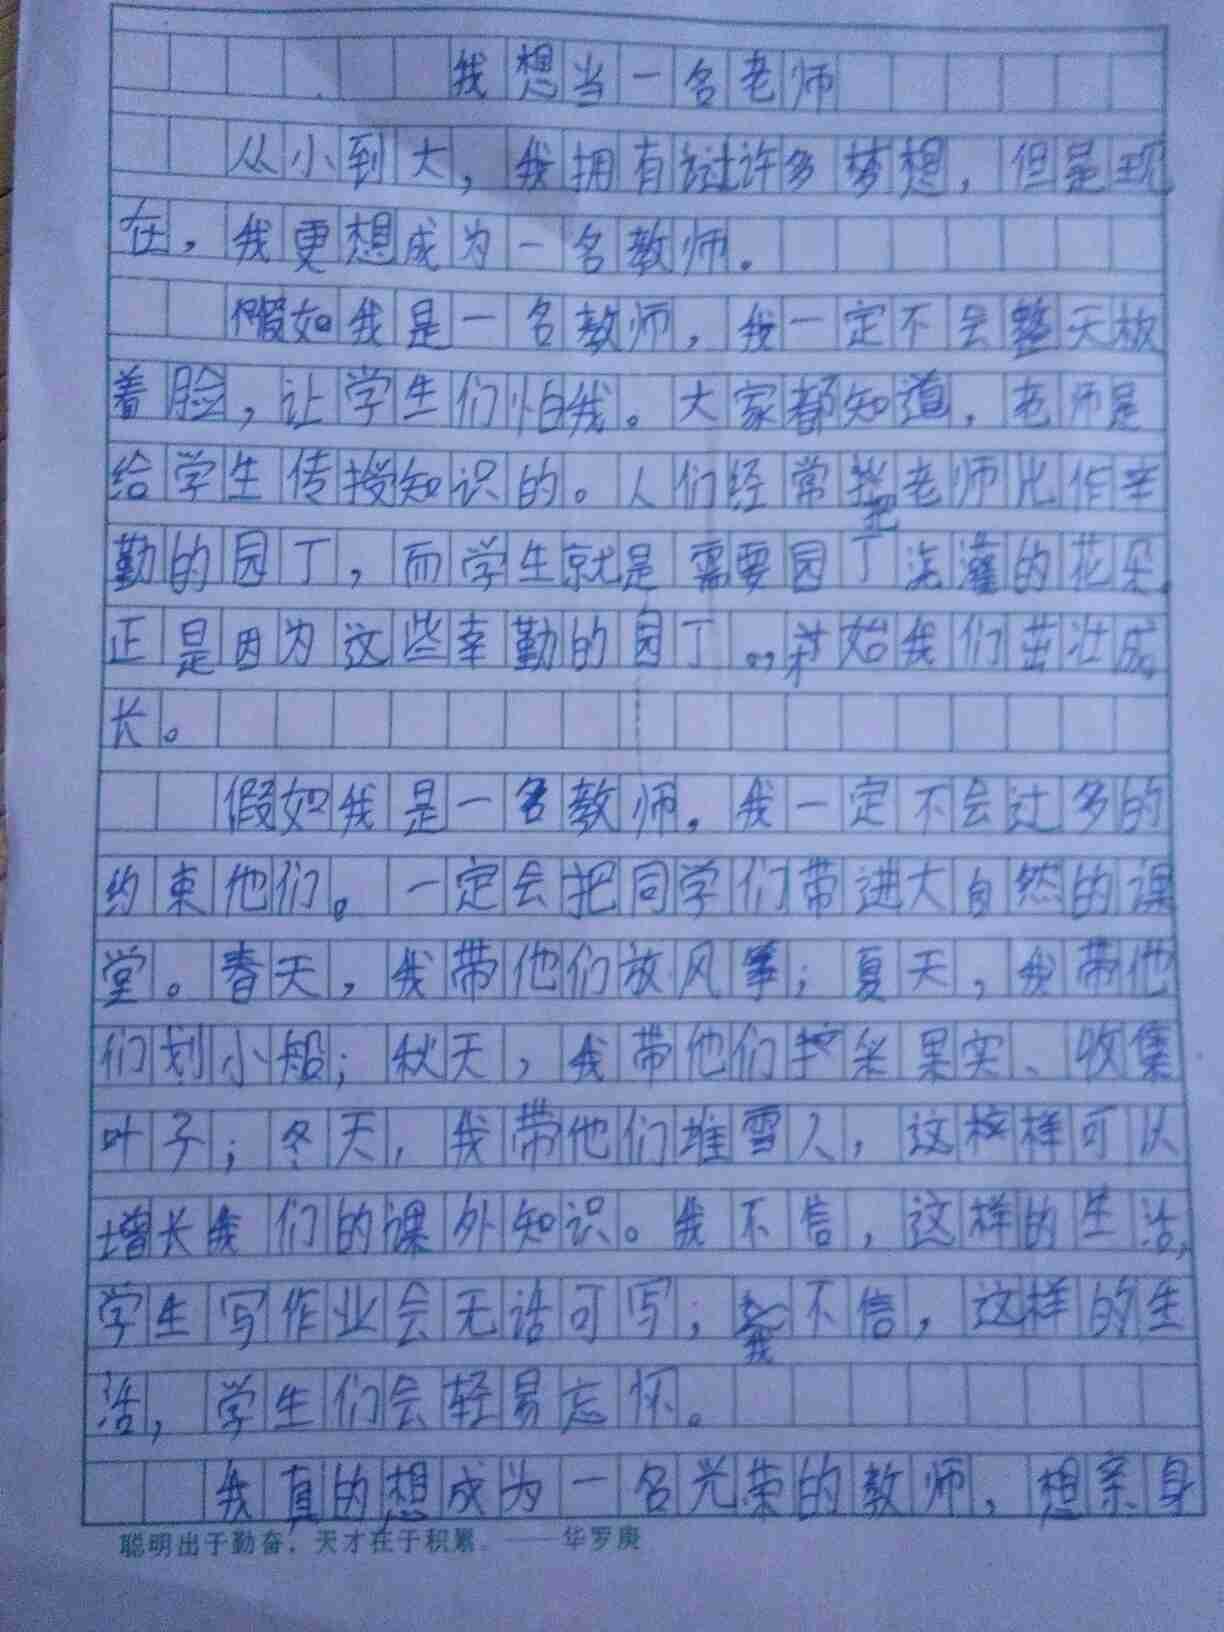 我想当一名老师
从小到大，我拥有过许多梦想，但是现
在，我更想成为一名教师。
假如我是一名教师，我一定不会整天板
着脸，让学生们怕我。大家都知道，老师是
给学生传授知识的。人们经常把老师比作辛
勤的园丁，而学生就是需要园丁浇灌的花朵。
正是因为这些辛勤的园丁，才始我们茁壮成
长。
假如我是一名教师，我一定不会过多的
约束他们。一定会把同学们带进大自然的课
堂。春天，我带他们放风筝；夏天，我带他
们划小船；秋天，我带他们采果实、收集
叶子；冬天，我带他们堆雪人，这样可以
增长我们的课外知识。我不信，这样的生活，
学生写作业会无话可写；我不信，这样的生
活，学生们会轻易忘怀。
我真的想成为一名光荣的教师，想亲身
聪明出于勤奋，天才在于积累。——华罗庚